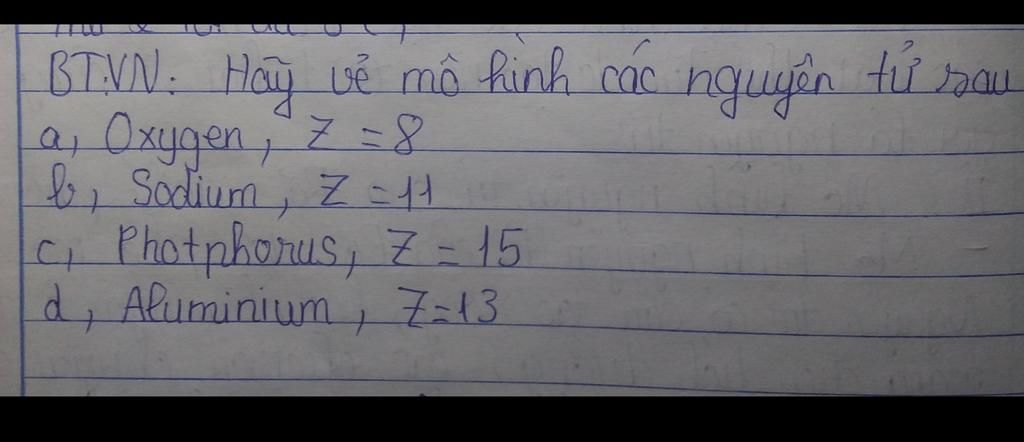 BT.VN: Hãy vẽ mô hình các nguyên tử sau
a, Oxygen, Z = 8
b, Sodium, Z = 11
c, Photphorus, Z = 15
d, Aluminium, Z=13